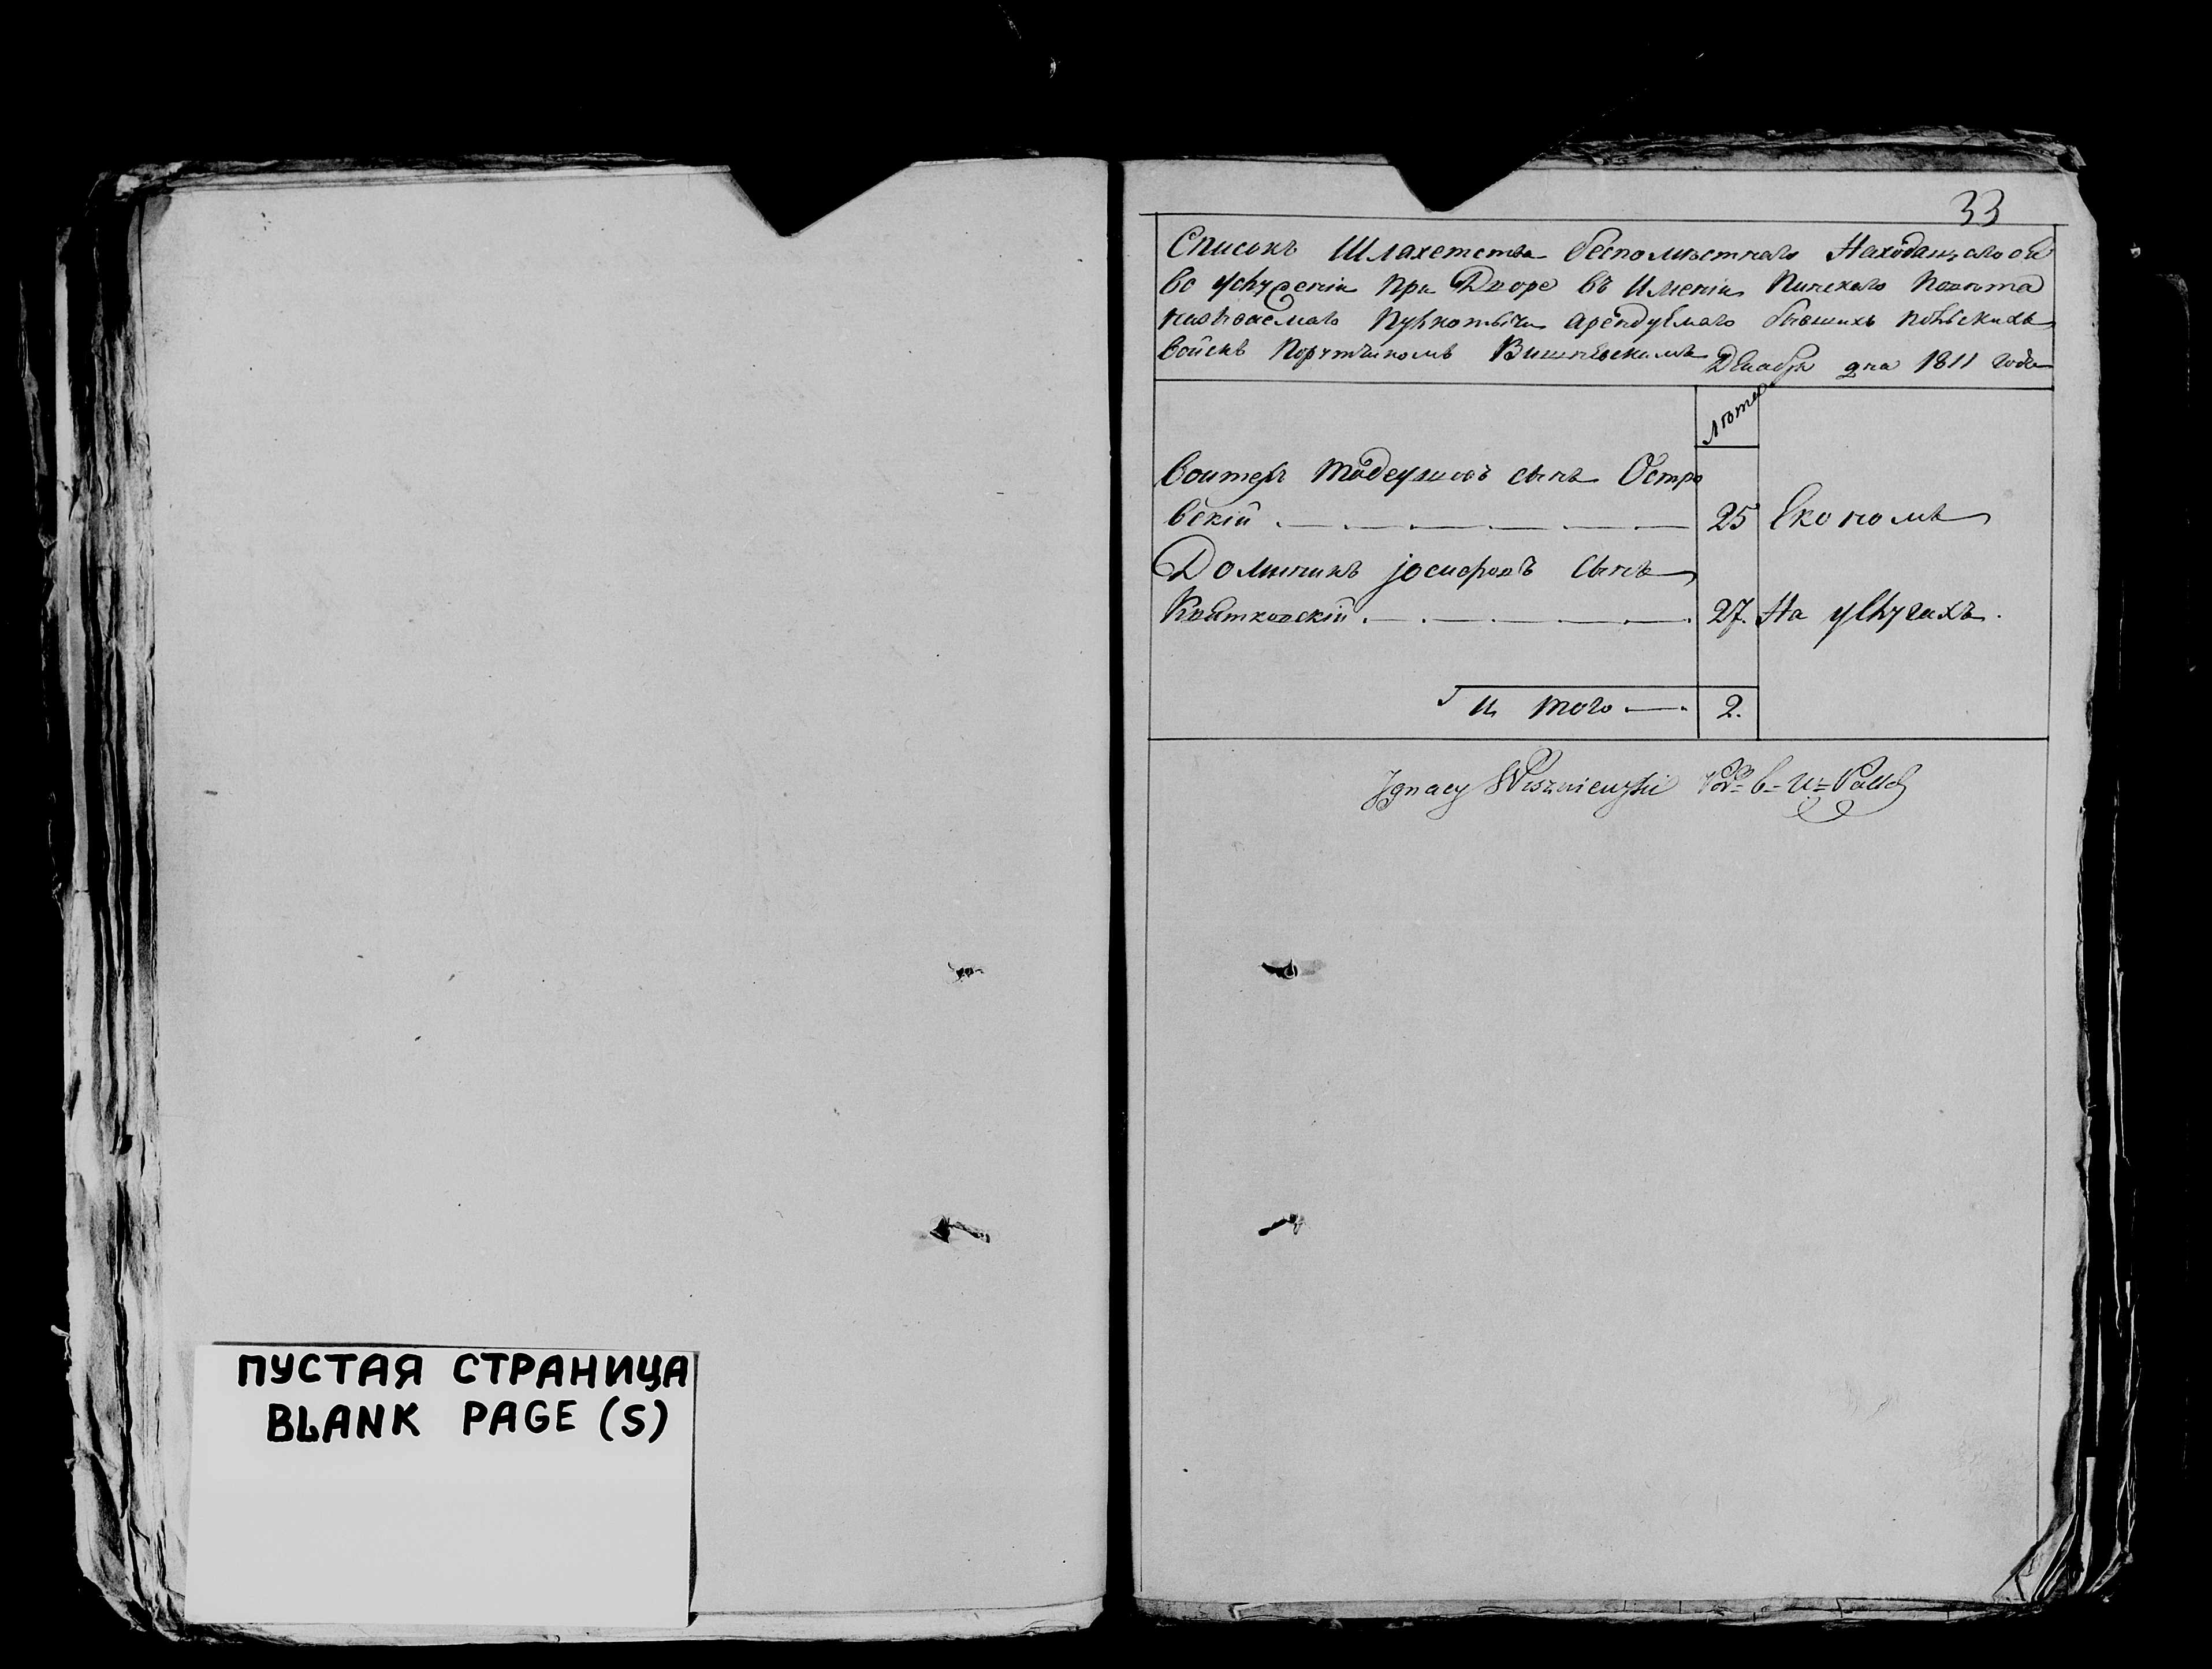 33
Списокъ Шлахетства беспоместнаго Находащагоси
во услуженіи при Дворе въ Имении Пинскаго Повѣта
называемаго арендуемаго бывшихъ польскихъ
войскъ Порутчикомъ Вишневскимъ Декабра дна 1811 года
Лѣта
Воитехъ Тадеушовъ сынъ Остро
вскій 25 Економъ
Доминикъ Іосифовъ сынъ
Квятковскій 27. На услугахъ.
И того 2.
Ignacy Wiszniewski
ПУСТАЯ СТРАНИЦА
BLANK PAGE (S)